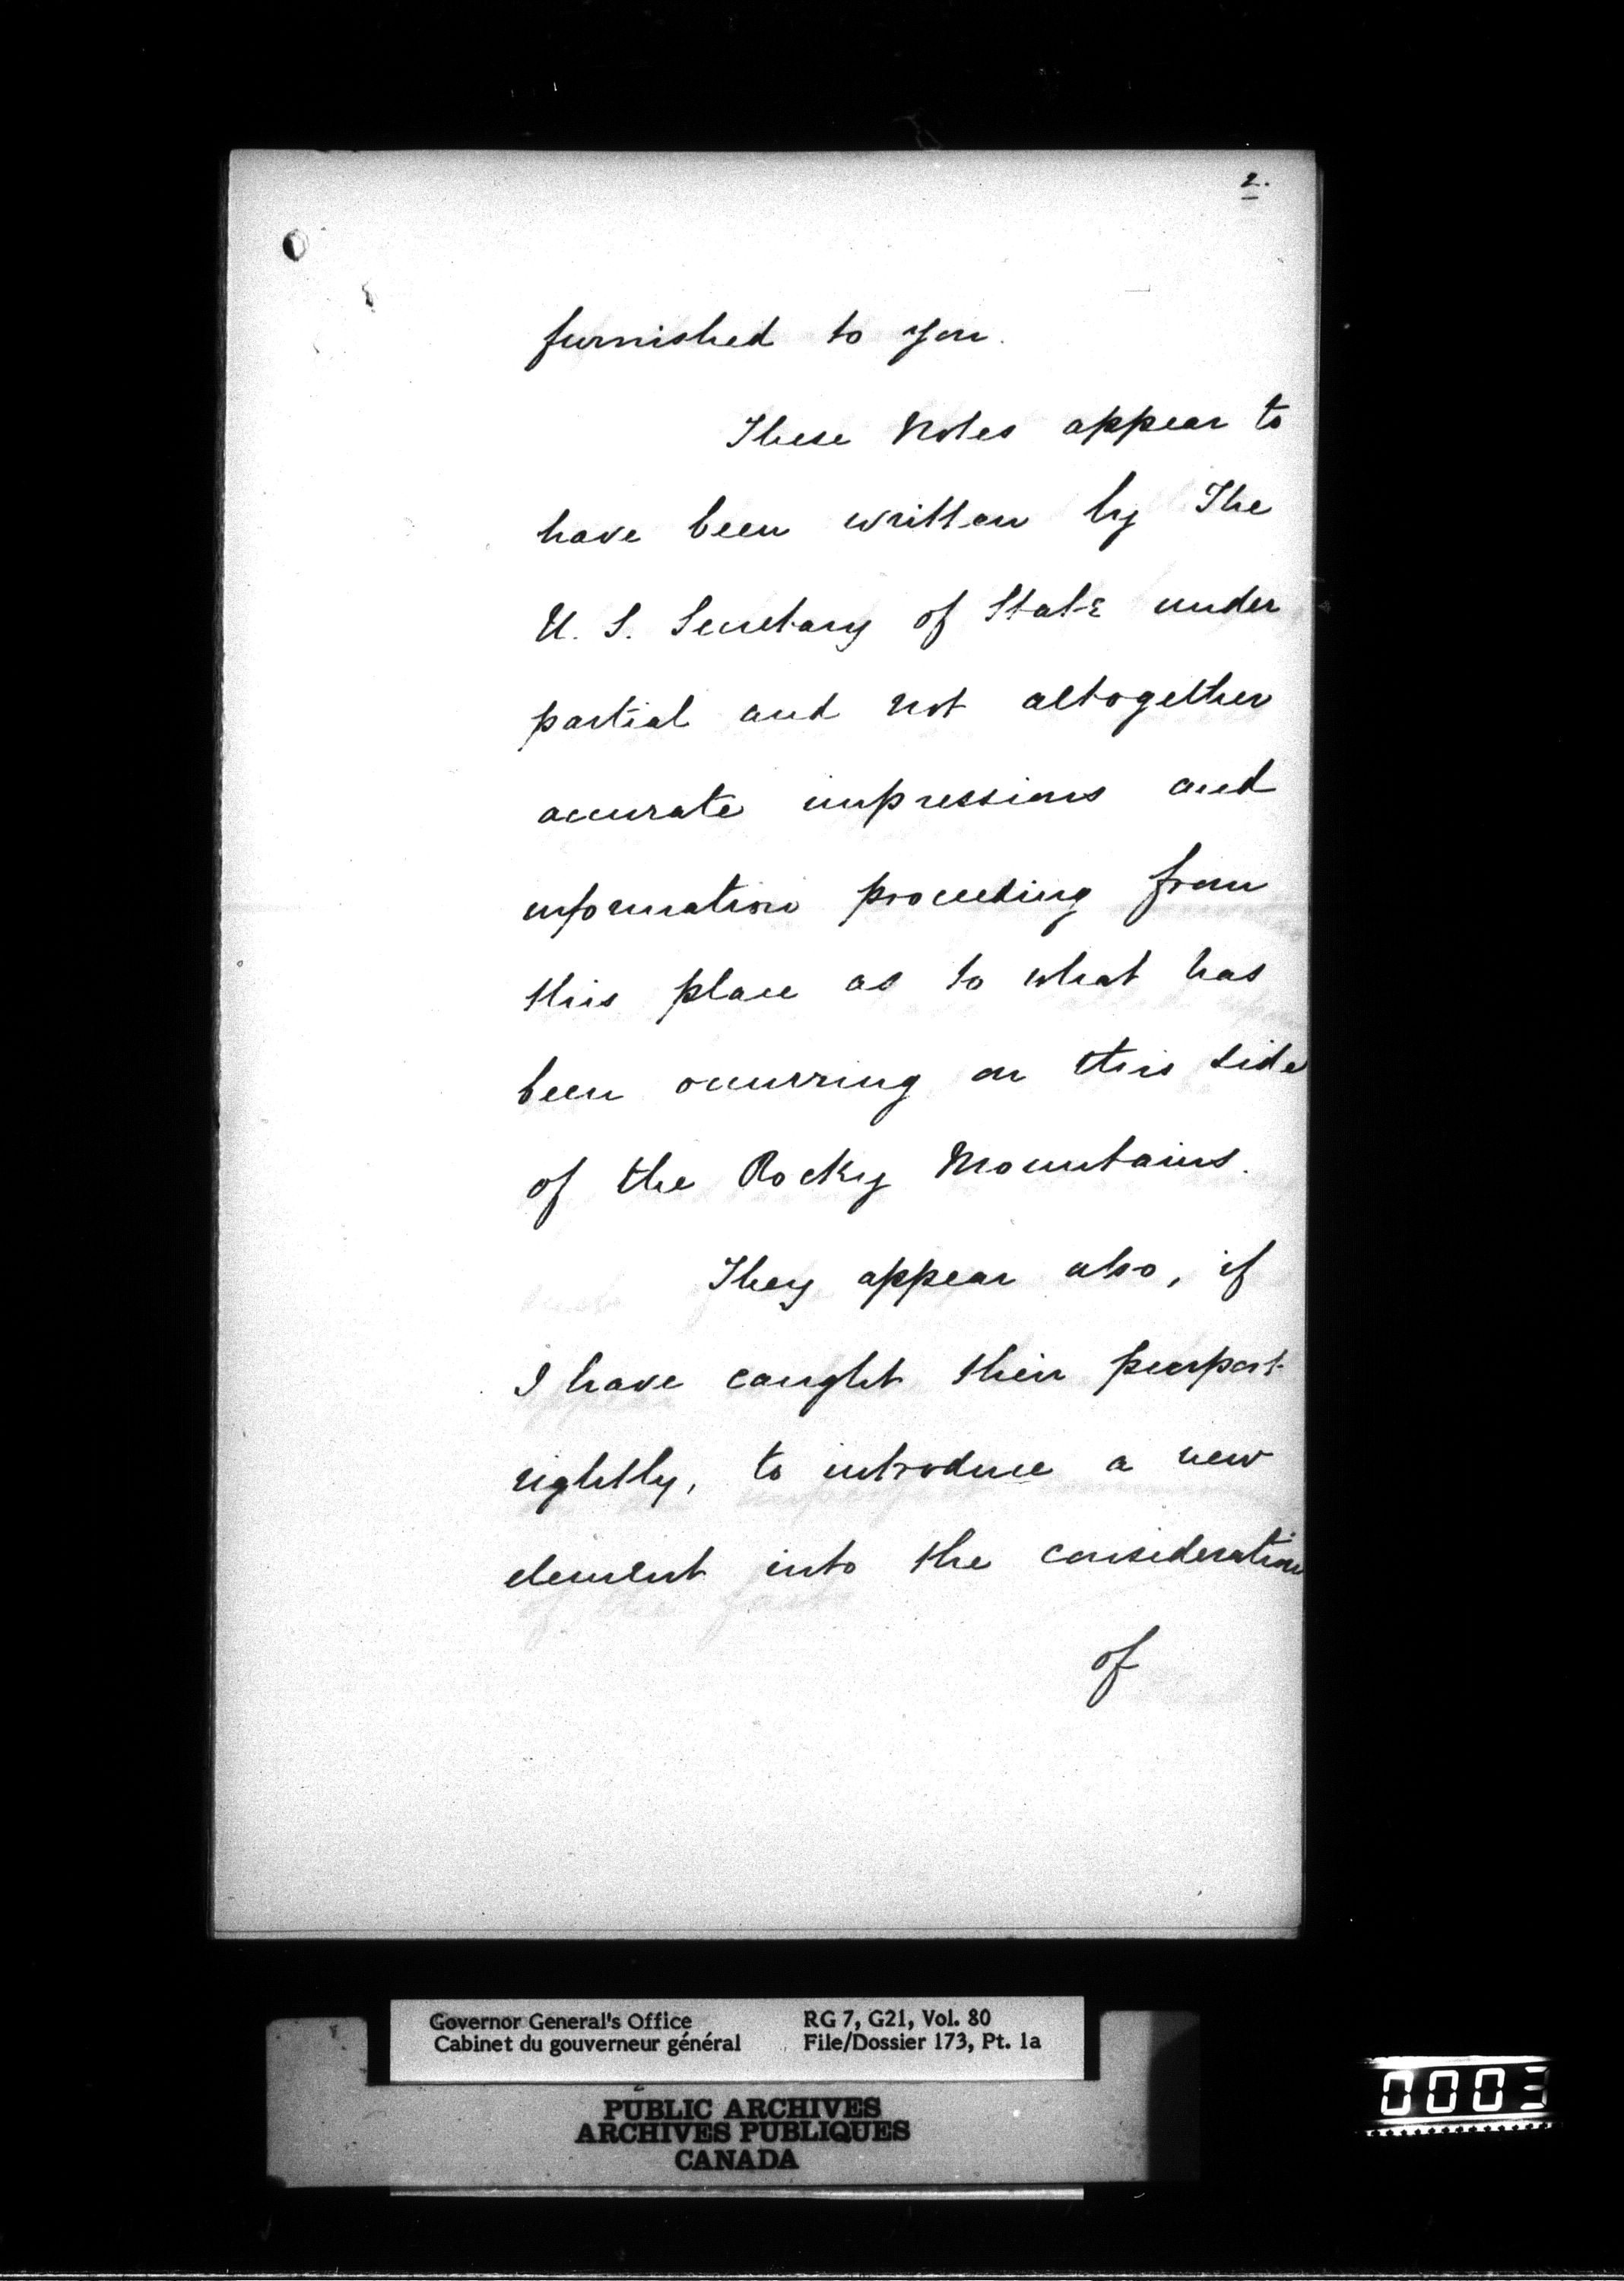 2.
furnished to you.
These Notes appear to
have been written by The
U. S. Secretary of State under
partial and not altogether
accurate impressions and
information proceeding from
this place as to what has
been occurring on this side
of the Rocky Mountains.
They appear also, if
I have caught their purport
rightly, to introduce a new
element into the consideration
of
Governor General's Office
Cabinet du gouverneur général
RG 7, G21, Vol. 80
File/Dossier 173, Pt. 1a
PUBLIC ARCHIVES
ARCHIVES PUBLIQUES
CANADA
0003